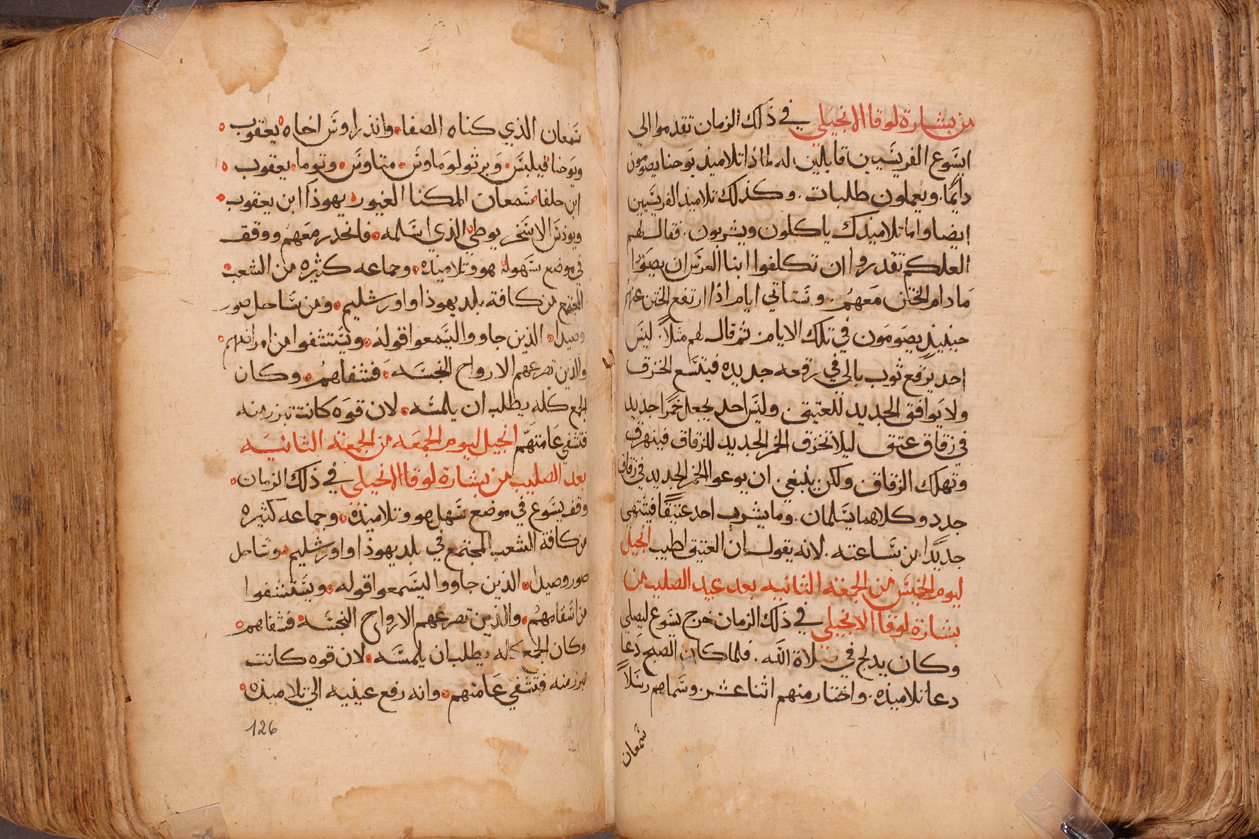 من بشارة لوقا الانجيلي في ذلك الزمان تقدموا الي
ايسوع الفريسيين قايلين له لماذا تلاميذ يوحنا يصومون
دايمًا. ويعملون طلبات. وكذلك تلاميذ الفريسيين
ايضا واما تلاميذك ياكلون ويشربون. فقال لهم
العلكم تقدروا ان تكلفوا ابنا العرس ان يصوموا
ما دام الختن معهم. وستاتي ايام اذا ارتفع الختن عنهم
حينيذٍ يصومون في تلك الايام. ثم قال لهم مثلًا. ليس
احد يرقع توب بالي في رقعه جديده فيتسع الخزق
ولا يوافق الجديد للعتيق. وليس احد يجعل خمرًا جديد
في زقاق عتق ليلا تخرق الخمر الجديد للزقاق فينهرق
وتهلك الزقاق ولكن ينبغي ان يوعوا الخمر الجديد في زقاق
جدد وكلاهما يسلمان. وما يشرب احد عتيقًا فيشتهي
جديدًا من ساعته. لانه يقول ان العتيق اطيب انجيل
ليوم الخميس من الجمعه الثانيه بعد عيد الصليب من
بشارة لوقا الانجيلي في ذلك الزمان خرج يسوع ليصلي
وكان يدلج في صلاة الله. فلما كان الصبح دعا
دعا تلاميذه. واختار منهم اثنا عشر. وسماهم رسلًا
سمعان
سمعان الذي كناه الصفا. واندراوس اخاه يعقوب
ويوحنا فيلبس. وبرتولوماوس. متاوس. وتوما. يعقوب
ابن حلفا. سمعان المكنا الغيور. يهوذا ابن يعقوب
ويودس الاسخريوطي الذي اسلمه. وانحدر معهم ووقف
في موضع سهوله هو وتلاميذه. وجماعه كثيره من الشعب
المجتمع من كافة بلد يهوذا واورشليم. ومن ساحل صور
وصيدا. الذين جاووا ليسمعوا قوله. ويستشفوا من امراضهم
والذين تصرعهم الارواح النجسه. فشفاهم. وكان
الجمع كله يطلب ان يلمسه. لان قوه كانت تبرز منه
فتشفي عامتهم انجيل ليوم الجمعه من الجمعه الثانيه
بعد الصليب من بشارة لوقا الانجيلي في ذلك الزمان.
وقف يسوع في موضع سهل هو وتلاميذه. وجماعه كثيره
من كافة الشعب المجتمع في بلد يهوذا واورشليم. وساحل
صور وصيدا. الذين جاووا ليسمعوا قوله. ويستشفوا
من اسقامهم. والذين تصرعهم الارواح النجسه. فشفاهم.
وكان الجمع كله يطلب ان يلمسه. لان قوه كانت
تبرز منه فتشفي عامتهم. وانه رفع عينيه الي تلاميذه.
126